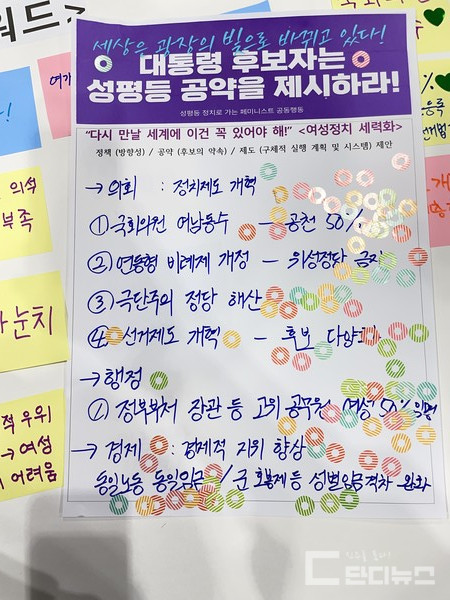 워드>
세상은 광장의 빛으로 바뀌고 있다!
대통령 후보자는
성평등 공약을 제시하라!
성평등 정치로 가는 페미니스트 공동행동
“다시 만날 세계에 이건 꼭 있어야 해!” <여성정치 세력화>
정책 (방향성) / 공약 (후보의 약속) / 제도 (구체적 실행 계획 및 시스템) 제안
→ 의회 : 정치제도 개혁
① 국회의원 여남동수 – 공천 50%
② 연동형 비례제 개정 – 위성정당 금지
③ 극단주의 정당 해산
④ 선거제도 개혁 – 후보 다양
→ 행정
① 정부부처 장관 등 고위 공무원 여성 50%
→ 경제 : 경제적 지위 향상
동일노동 동일임금 / 군 호봉제 등 성별임금격차 완화
의석
부족
눈치
적 우위
→ 여성
어려움
단디뉴스